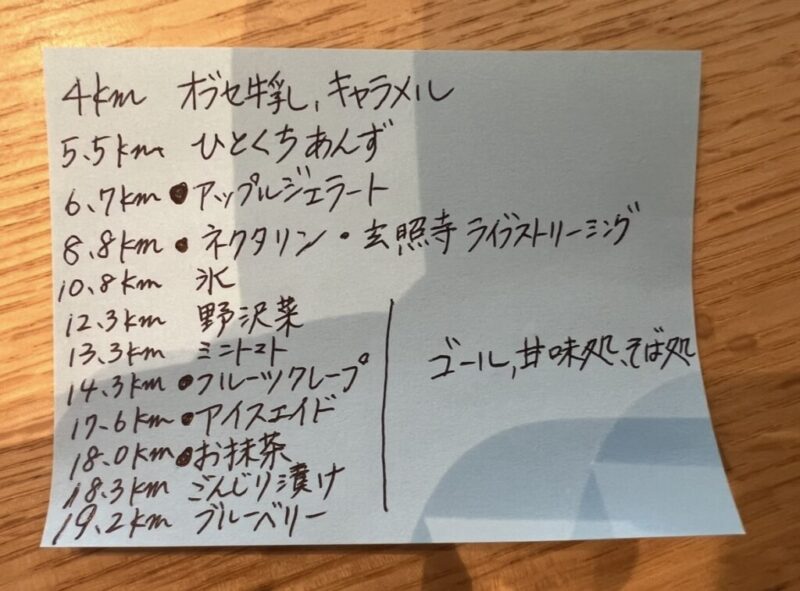 4km オブセ牛乳,キャラメル
5.5km ひとくちあんず
6.7km ●アップルジェラート
8.8km ●ネクタリン・玄照寺 ライブストリーミング
10.8km 氷
12.3km 野沢菜
13.3km ミニトマト
14.3km ●フルーツクレープ
17.6km ●アイスエイド
18.0km ●お抹茶
18.3km ごんじり漬け
19.2km ブルーベリー
ゴール,甘味処、そば処